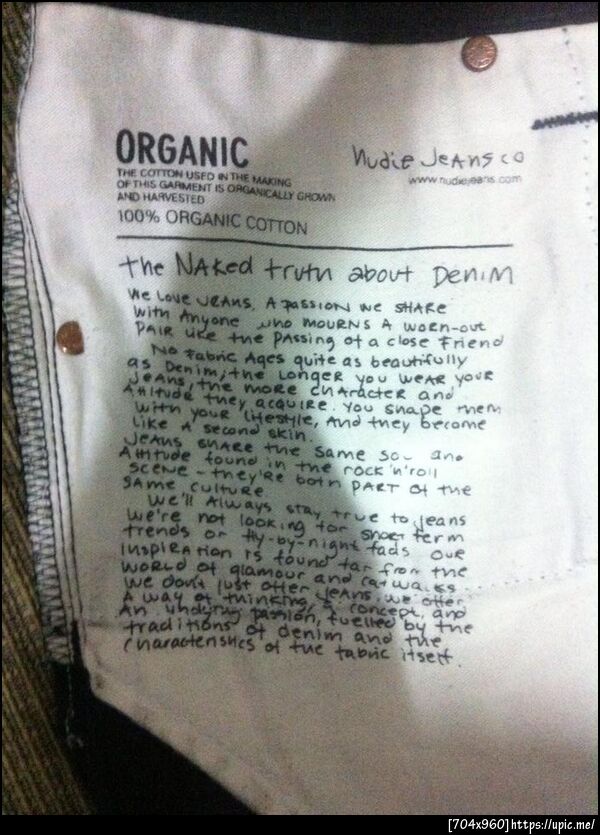 ORGANIC
THE COTTON USED IN THE MAKING
OF THIS GARMENT IS ORGANICALLY GROWN
AND HARVESTED
100% ORGANIC COTTON
nudie jeans co
www.nudiejeans.com
the NAKed truth about Denim
We Love Jeans. A passion we share
with Anyone who mourns a worn-out
PAIR like the passing of a close friend
No fabric Ages quite as beautifully
as Denim, the Longer you wear your
Jeans, the more character and
Attitude they acquire. You shape them
with your lifestyle, And they become
like a second skin.
Jeans share the same soul and
Attitude found in the rock'n'roll
scene - they're both PART of the
same culture
We'll Always stay true to jeans
We're not looking for short term
trends or fly-by-night fads. Our
inspiration is found far from the
world of glamour and catwalks.
We don't just offer Jeans. We offer
A way of thinking, a concept, and
An undying passion, fuelled by the
traditions of denim and the
characteristics of the fabric itself.
[704x960]https://upic.me/